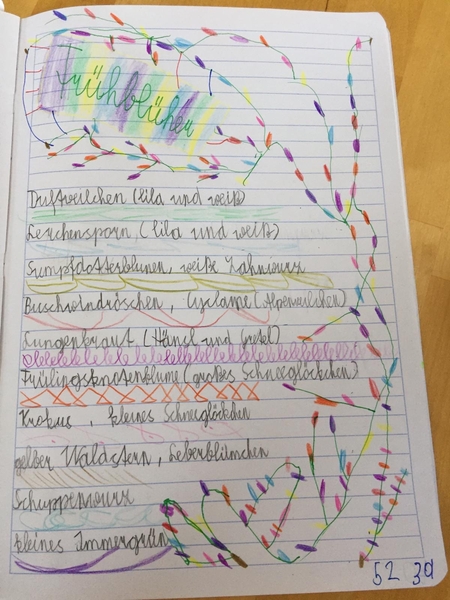 Frühblüher
Duftveilchen (lila und weiß)
Lerchensporn, (lila und weiß)
Sumpfdotterblumen, weiße Zahnwurz
Buschwindröschen, Cyclame (Alpenveilchen)
Lungenkraut (Hänsl und Gretel)
Frühlingsknotenblume (großes Schneeglöckchen)
Krokus, kleines Schneeglöckchen
gelber Waldstern, Leberblümchen
Schuppenwurz
kleines Immergrün
52 3a